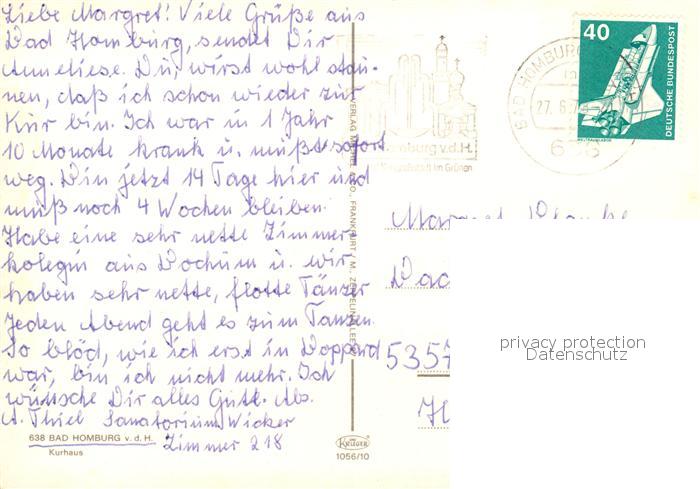 Liebe Margret! Viele Grüße aus
Bad Homburg, sendet Dir
Anneliese. Du, wirst wohl stau-
nen, daß ich schon wieder zur
Kur bin. Ich war in 1 Jahr
10 Monate krank u. mußte sofort
weg. Bin jetzt 14 Tage hier und
muß noch 4 Wochen bleiben.
Habe eine sehr nette Zimmer-
kolegin aus Bochum u. wir
haben sehr nette, flotte Tänzer
Jeden Abend geht es zum Tanzen.
So blöd, wie ich erst in Boppard
war, bin ich nicht mehr. Ich
wünsche Dir alles Gute. Abs.
A. Thiel Sanatorium Wicker
Zimmer 218
638 BAD HOMBURG v. d. H.
Kurhaus
KRÜGER
1056/10
FRANKFURT / M., ZEPPELINALLEE
BAD HOMBURG
27. 6.
Homburg v.d.H.
im Grünen
40
DEUTSCHE BUNDESPOST
Margret
Bad
5357
privacy protection
Datenschutz